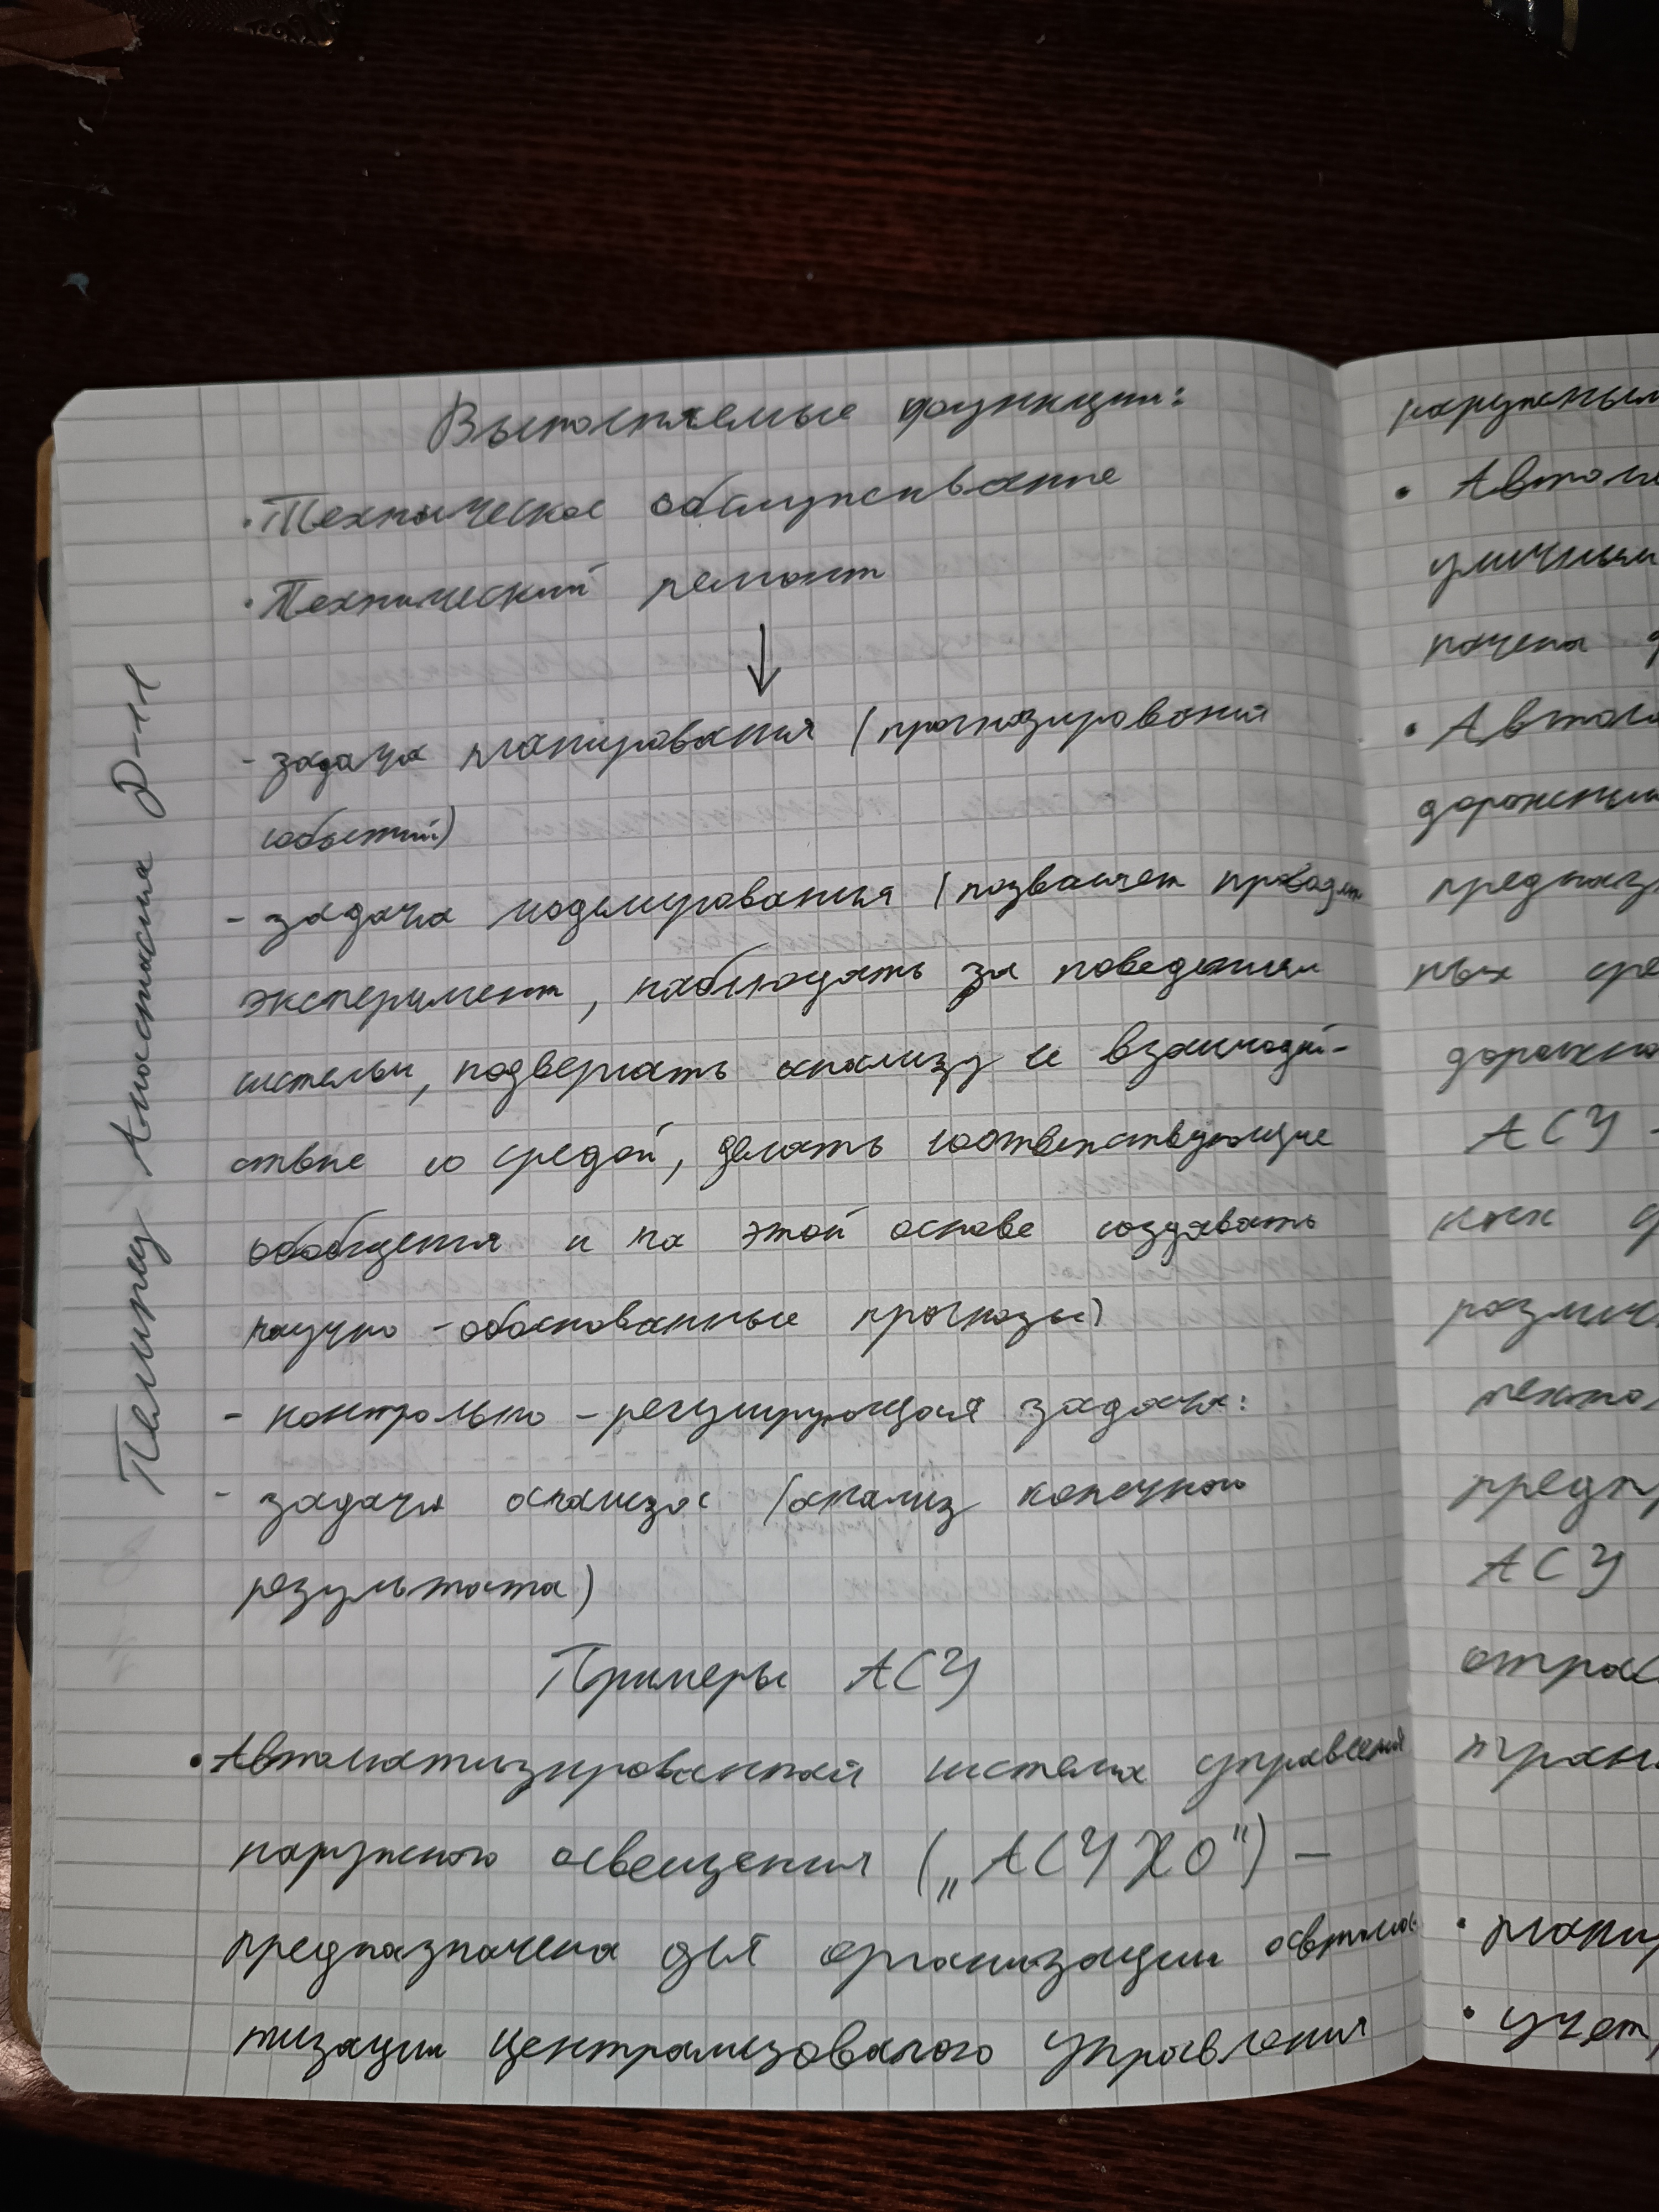 Выполняемые функции:
· Техническое обслуживание
· Технический ремонт
↓
- задача планирования (прогнозирования
событий)
- задача моделирования (позволяет проводить
эксперимент, наблюдать за поведением
системы, подвергать анализу и взаимодей-
ствие со средой, делать соответствующие
обобщения и на этой основе создавать
научно-обоснованные прогнозы)
- контрольно-регулирующая задача:
- задача анализа (анализ конечного
результата)
Примеры АСУ
• Автоматизированной система управления
наружного освещения („АСУ ХО") —
предназначена для организации автома-
тизации централизованого управления
Анастасия Д-11
наружным
• Автом
уличным
начена д
• Автом
дорожным
предназ
ных сре
дорожно
АСУ -
как д
различ
техно
предпр
АСУ
отрас
тран
• плани
• учет,